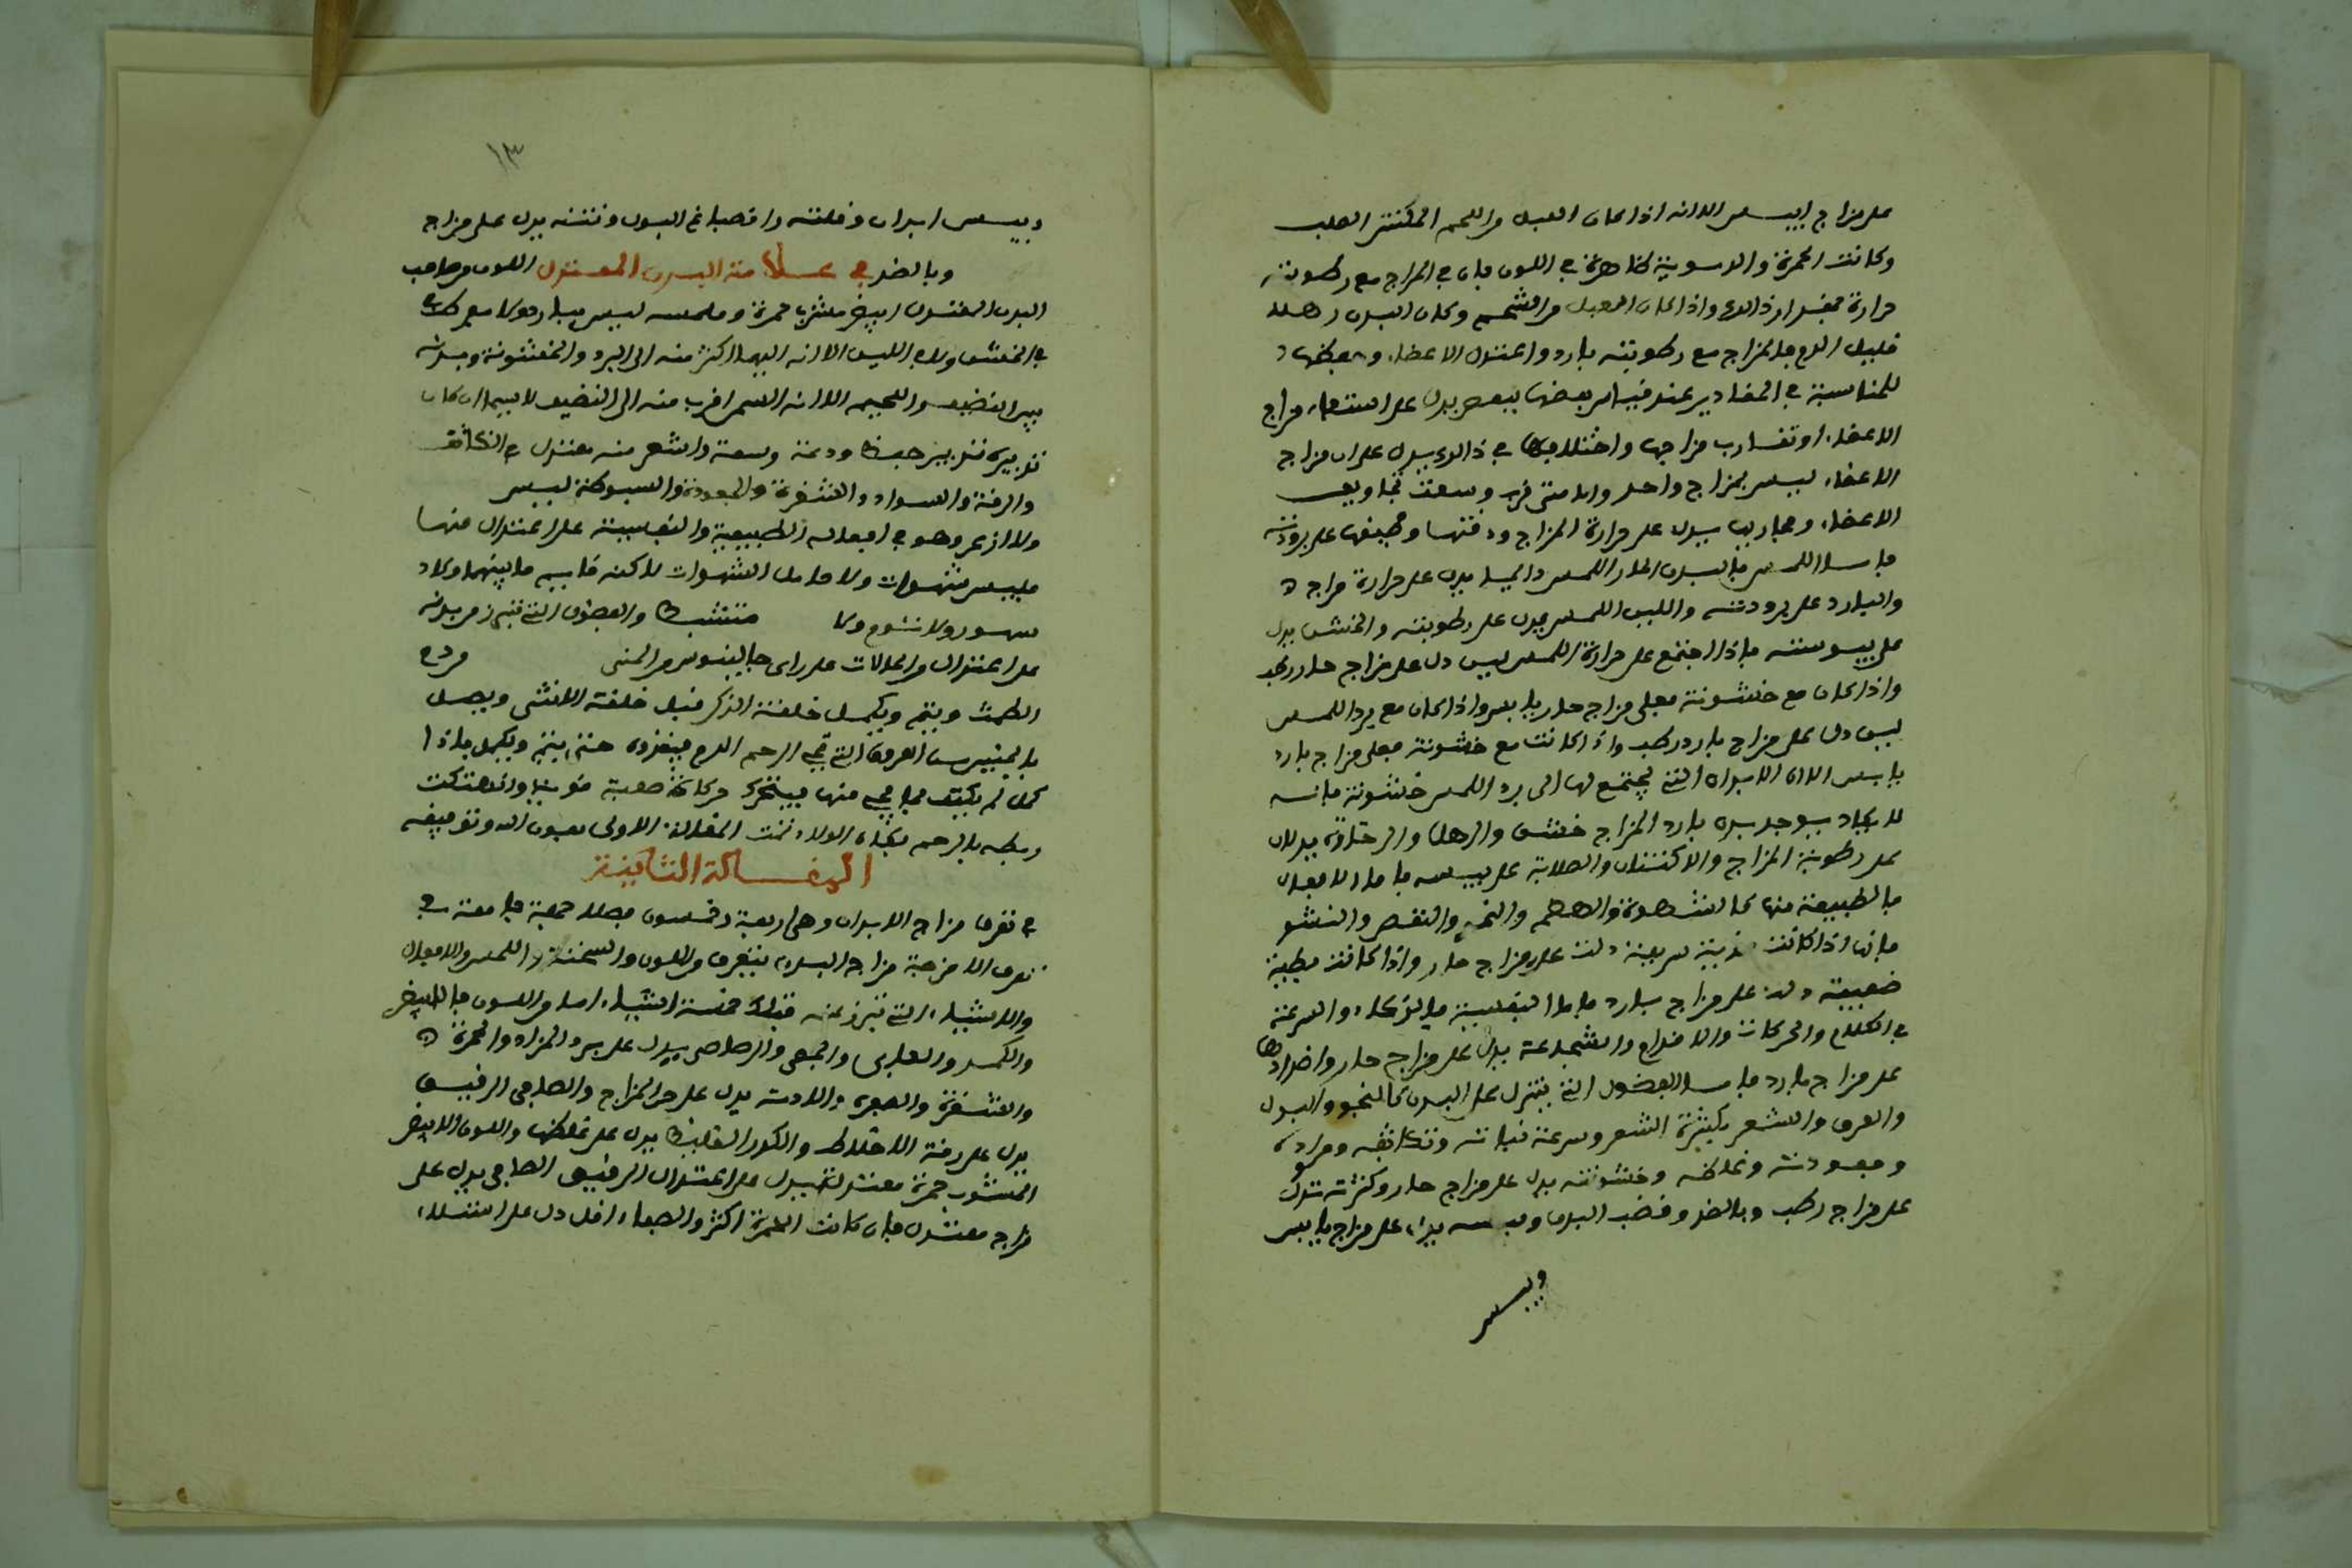 على مزاج اليبس الا انه اذا كان العبل من اللحم المكتنز الصلب
وكانت الحمرة والدسوية ظاهرة في اللون فان في المزاج مع رطوبته
حرارة بمقدار ذالك واذا كان العبل من الشحم وكان البدن رهلا
قليل الدم فالمزاج مع رطوبته بارد واعتدال الاعضاء وحفظها
للمناسبة في المقادير عند قياس بعضها ببعض يدل على استواء مزاج
الاعضاء او تقارب مزاجها واختلافها في ذالك يدل على ان مزاج
الاعضاء ليس بمزاج واحد ولا متقارب وسعة تجاويف
الاعضاء ومجاريها يدل على حرارة المزاج ودقتها وضيقها على برودته
فاما اللمس فالبدن الحار اللمس دايما يدل على حرارة مزاجه
والبارد على برودته واللين اللمس يدل على رطوبته والخشن يدل
على يبوسته فاذا اجتمع على حرارة اللمس لين دل على مزاج حار رطب
واذا كان مع خشونة فعلى مزاج حار يابس واذا كان مع برد اللمس
لين دل على مزاج بارد رطب واذا كانت مع خشونة فعلى مزاج بارد
يابس الا ان الابدان التي يجتمع لها الى برد اللمس خشونة فانه
لا يكاد يوجد بدن بارد المزاج خشن والرهل والرخاوة يدلان
على رطوبة المزاج والاكتناز والصلابة على يبسه فاما الافعال
فالطبيعة منها كالشهوة والهضم والنمو والنقص والنشو
فانها اذا كانت قوية سريعة دلت على مزاج حار واذا كانت بطية
ضعيفة دلت على مزاج بارد فاما النفسية فالذكاء والسرعة
في الكلام والحركات والاقدام والشجاعة يدل على مزاج حار واضدادها
على مزاج بارد فاما الفضول التي تنزل على البدن كالنجو والبول
والعرق والشعر فكثرة الشعر وسرعة نباته وتكاثفه وسواده
وجعودته وغلظه وخشونته يدل على مزاج حار وكثرته تدل
على مزاج رطب وبالضد وقضف البدن ويبسه يدل على مزاج يابس
ويبس
١٣
ويبس ابدان وقلته وانصباغ البول ونتنه يدل على مزاج
وبالضد في علامة البدن المعتدل اللون وصاحب
البدن المعتدل ابيض مشرب حمرة وملمسه ليس ببارد ولا مفرط
في الخشن ولا في اللين الا انه اليهما اكثر منه الى البرد والخشونة وبدنه
بين القضيف واللحيم الا انه السمن اقرب منه الى القضيف لا سيما ان كان
تدبيره تدبير حفظ ودعة وسعة والشعر منه معتدل في التكاثف
والرقة والسواد والشقرة والجعودة والسبوطة ليس
ولا ازعر وهو في افعاله الطبيعية والنفسية على اعتدال منها
فليس شهوات ولا خامل الشهوات لاكنه فاسيم ما بينهما ولا
ولا نشوم ولا منتشبط والفضول التي تبرز من بدنه
على اعتدال من الحالات على راى جالينوس من المنى ودم
الطمث ويتم ويكمل خلقة الذكر قبل خلقة الانثى ويصل
بالجنين من العروق التي في الرحم الدم فيغذوه حتى يتم ويكمل فاذا
كمل لم يكتف بما يجيء منها فيتحرك حركات صعبة قوية وانهتكت
ربطه بالرحم فجاء الولاد تمت المقالة الاولى بعون الله وتوفيقه
المقالة الثانية
في تعرف مزاج الابدان وهى اربعة وخمسون فصلا جمعية جامعة في
تعرف الامزجة مزاج البدن يتعرف من اللون والسحنة واللمس والافعال
والاشياء التي تبرز عنه فتلك خمسة اشياء اما من اللون فالابيض
والكمد والعاجى والجصى والرصاصى يدل على برد المزاج والحمرة
والشقرة والصفرة والادمة يدل على حر المزاج والصافى الرقيق
يدل على رقة الاخلاط والكدر الغليظ يدل على غلظها واللون الابيض
المشوب بحمرة معتدلة يدل على اعتدال الرقيق الصافى يدل على
مزاج معتدل فان كانت الحمرة اكثر والصفاء اقل دل على امتلاء